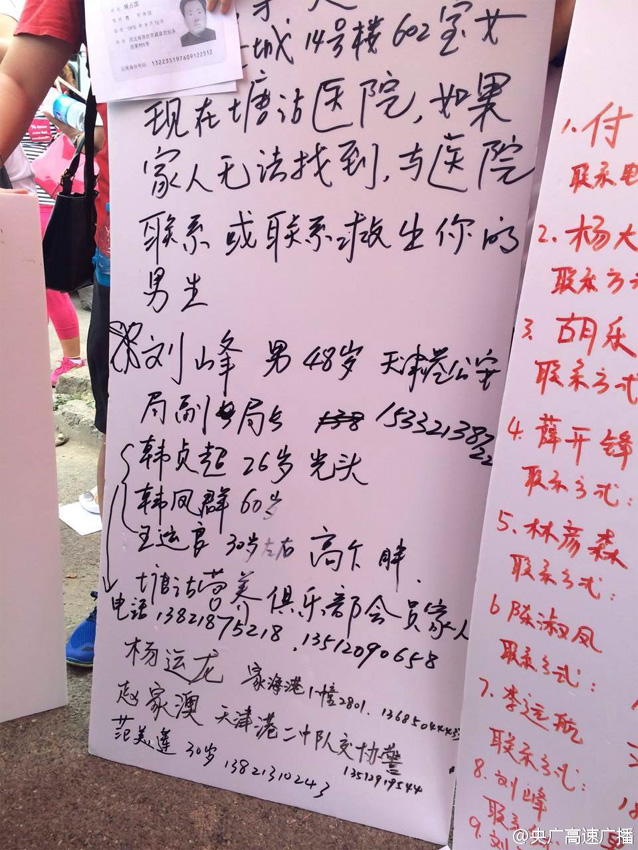 132235197609122512
城14号楼602室女
现在塘沽医院,如果
家人无法找到,与医院
联系或联系救生你的
男生
刘峰 男 48岁 天津港公安
局副局长 1533213822
韩贞超 26岁 光头
韩凤群 60岁
王运良 30岁左右 高个 胖.
塘沽 俱乐部会员家人
电话 13821875218 . 13512090658
杨运龙 家海港1幢2801. 136850444
赵家澳 天津港二中队交协警
13512919544
范美莲 30岁 13821310243
1. 付
联系电
2. 杨大
联系方式
3. 胡乐
联系方式
4. 薛开锋
联系方式:
5. 林彦森
联系方式:
6 陈淑凤
联系方式:
7. 李运航
联系方式:
8. 刘峰
联系方式:
9. 刘
@央广高速广播